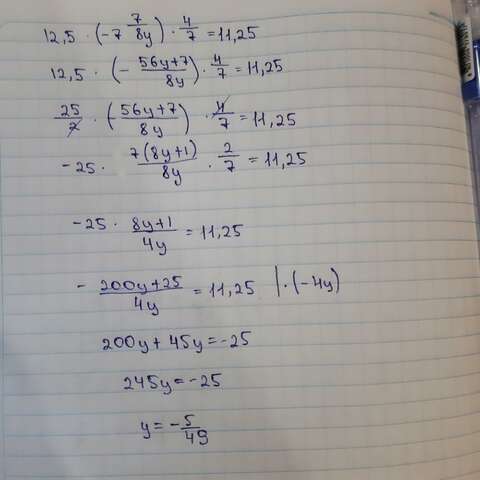 12,5 · (-7 7/8y) · 4/7 = 11,25
12,5 · (- 56y+7/8y) · 4/7 = 11,25
25/2 · (- 56y+7/8y) · 4/7 = 11,25
-25 · 7(8y+1)/8y · 2/7 = 11,25
-25 · 8y+1/4y = 11,25
- 200y+25/4y = 11,25 |·(-4y)
200y + 45y = -25
245y = -25
y = - 5/49